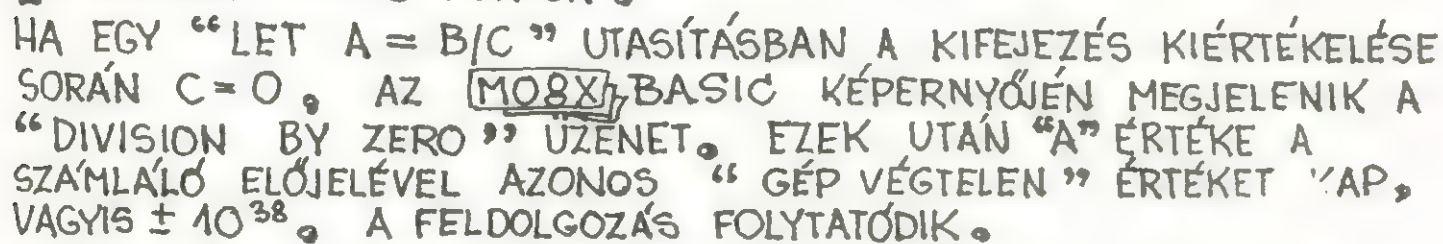 HA EGY “LET A = B/C” UTASÍTÁSBAN A KIFEJEZÉS KIÉRTÉKELÉSE
SORÁN C=0, AZ MO8X BASIC KÉPERNYŐJÉN MEGJELENIK A
“DIVISION BY ZERO” ÜZENET. EZEK UTÁN “A” ÉRTÉKE A
SZÁMLÁLÓ ELŐJELÉVEL AZONOS “GÉP VÉGTELEN” ÉRTÉKET KAP,
VAGYIS ± 10³⁸. A FELDOLGOZÁS FOLYTATÓDIK.